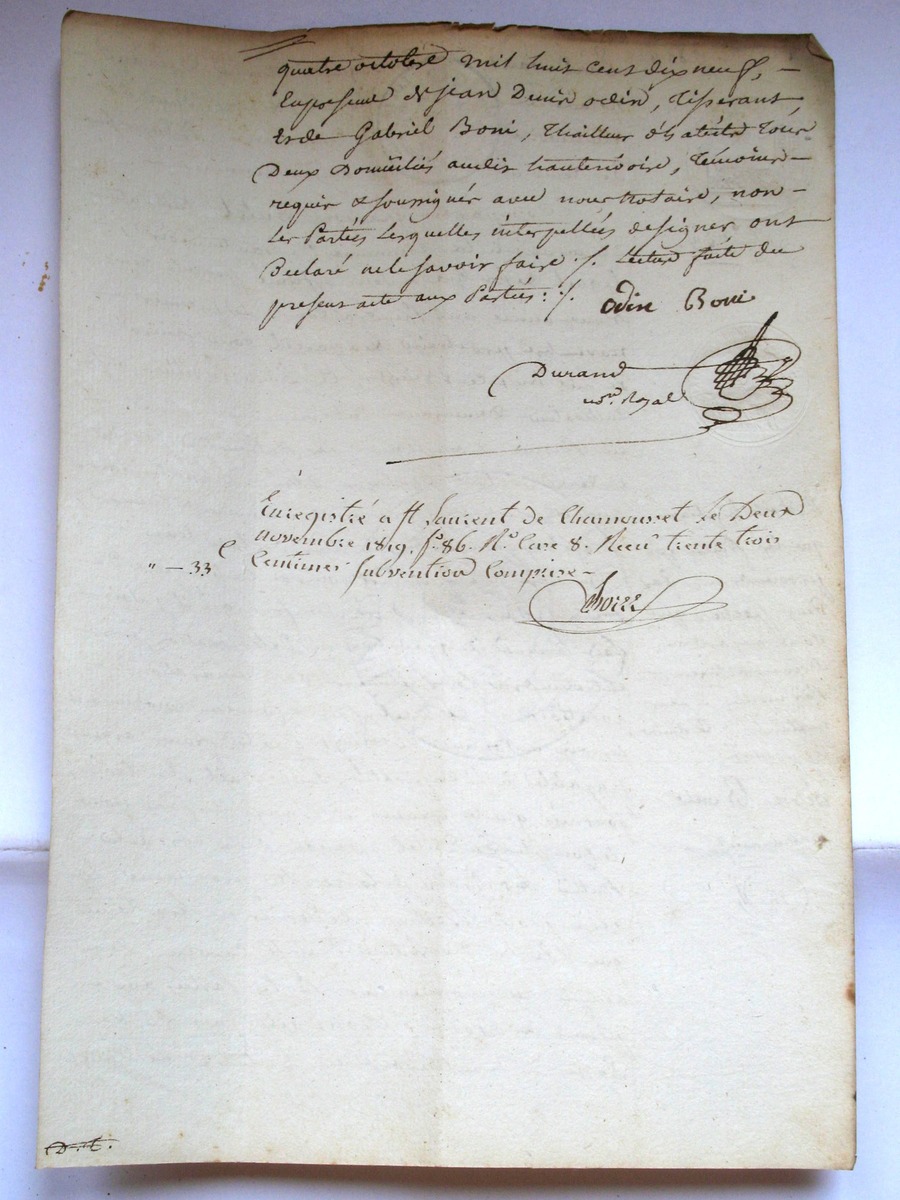 quatre octobre mil huit cent dix neuf, —
En presence de jean Denis odin, Tisserant,
et de Gabriel Boni, Thailleur d'habits Tous
Deux Domiciliés audit hauterivoire, Témoins —
requis & soussignés avec nous Notaire, non —
les Parties lesquelles interpellées de signer ont
Declaré ne le savoir faire ./. Lecture faite du
present acte aux Parties : ./. odin Boni
Durand
no.re Royal
Enregistré a St Laurent de Chamousset le Deux
novembre 1819. f.o 86. R.o Case 8. Recu trente trois
" — 33 c Centimes subvention Comprise —
D..t.